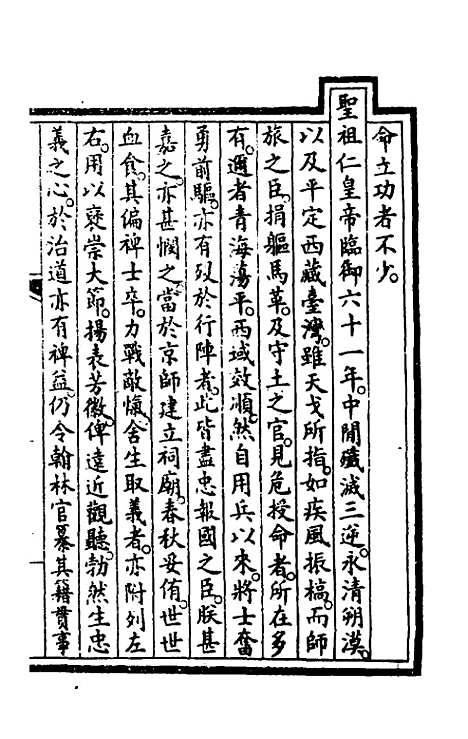 命立功者不少。
聖祖仁皇帝臨御六十一年。中間殲滅三逆。永清朔漠。
以及平定西藏臺灣。雖天戈所指。如疾風振槁。而師
旅之臣。捐軀馬革。及守土之官。見危授命者。所在多
有。邇者青海蕩平。西域效順。然自用兵以來。將士奮
勇前驅。亦有歿於行陣者。此皆盡忠報國之臣。朕甚
嘉之。亦甚憫之。當於京師建立祠廟。春秋妥侑。世世
血食。其偏裨士卒。力戰敵愾。舍生取義者。亦附列左
右。用以褒崇大節。揚表芳徽。俾遠近觀聽。勃然生忠
義之心。於治道亦有裨益。仍令翰林官纂其籍貫事